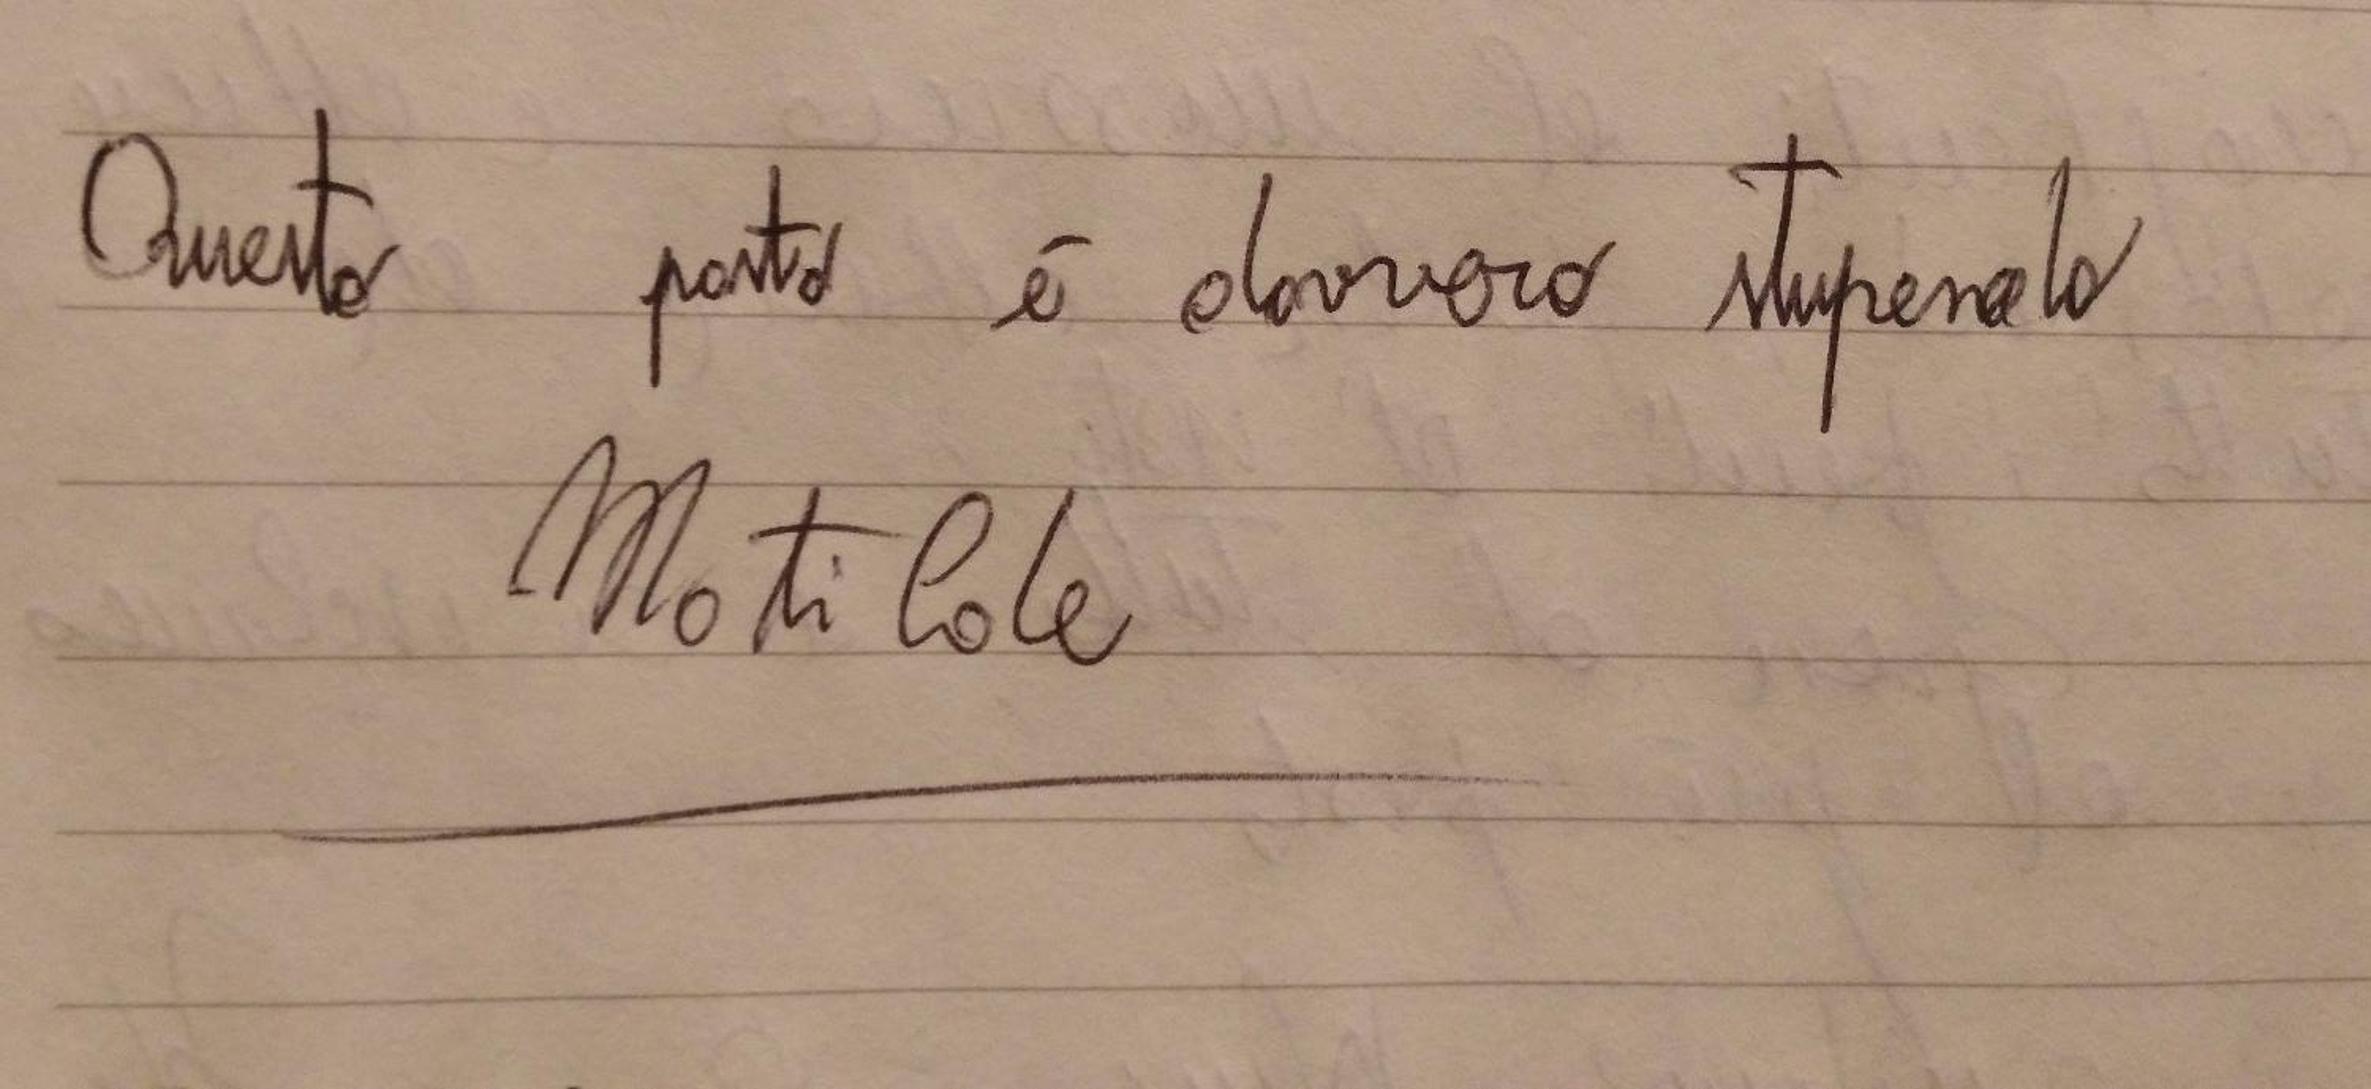 Questo posto è davvero stupendo
Moti Cole